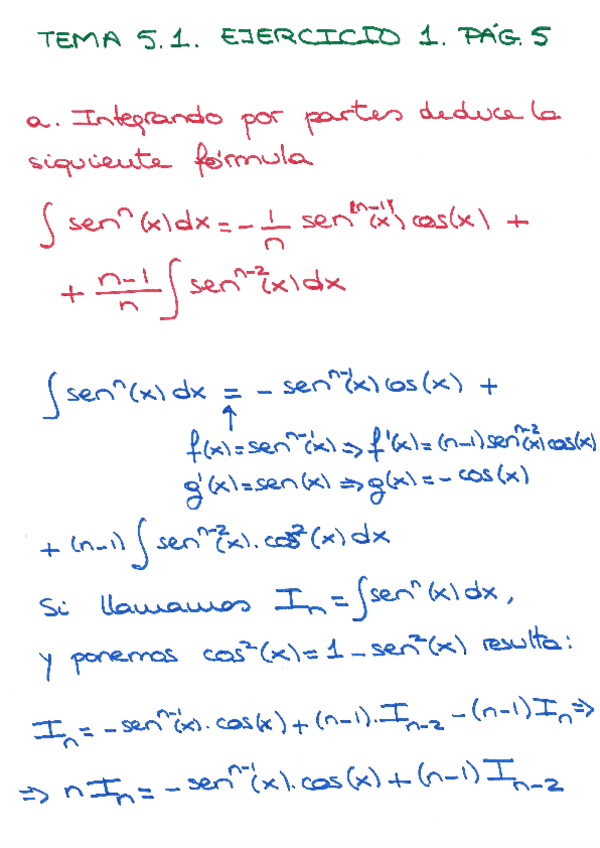 TEMA 5.1. EJERCICIO 1. PÁG. 5
a. Integrando por partes deduce la
siguiente fórmula
∫ senⁿ(x)dx = - 1/n sen⁽ⁿ⁻¹⁾(x) cos(x) +
+ n-1/n ∫ senⁿ⁻²(x)dx
∫ senⁿ(x) dx = - senⁿ⁻¹(x) cos(x) +
↑
f(x) = senⁿ⁻¹(x) ⇒ f'(x) = (n-1) senⁿ⁻²(x) cos(x)
g'(x) = sen(x) ⇒ g(x) = - cos(x)
+ (n-1) ∫ senⁿ⁻²(x). cos²(x) dx
Si llamamos Iₙ = ∫ senⁿ(x) dx,
y ponemos cos²(x) = 1 - sen²(x) resulta:
Iₙ = - senⁿ⁻¹(x). cos(x) + (n-1). Iₙ₋₂ - (n-1) Iₙ ⇒
⇒ n Iₙ = - senⁿ⁻¹(x). cos(x) + (n-1) Iₙ₋₂